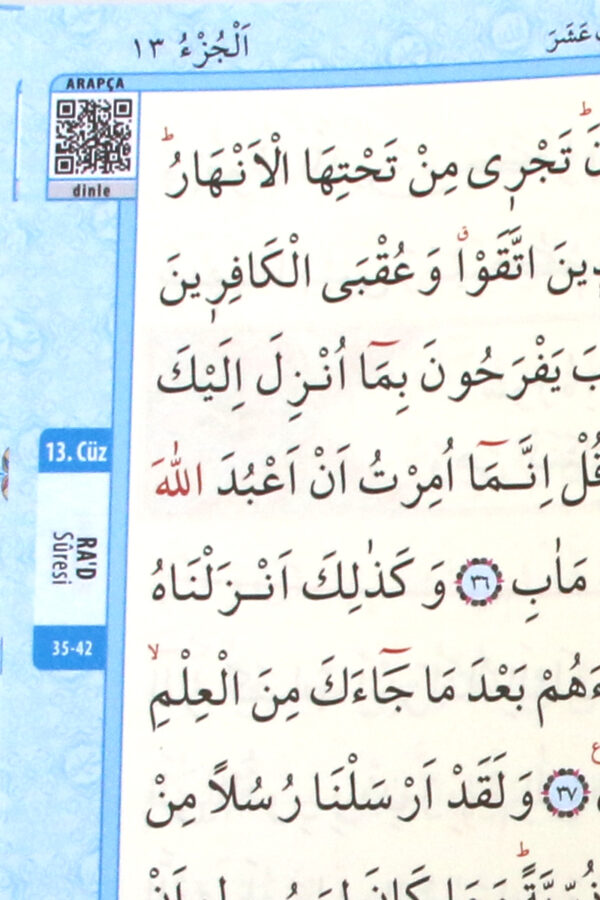 اَلْجُزْءُ ١٣
عَشَرَ
ARAPÇA
dinle
تَجْرٖى مِنْ تَحْتِهَا الْاَنْهَارُؕ
اتَّقَوْاۗ وَعُقْبَى الْكَافِرٖينَ
يَفْرَحُونَ بِمَٓا اُنْزِلَ اِلَيْكَ
قُلْ اِنَّمَٓا اُمِرْتُ اَنْ اَعْبُدَ اللّٰهَ
مَاٰبِ ٣٦ وَكَذٰلِكَ اَنْزَلْنَاهُ
بَعْدَ مَا جَٓاءَكَ مِنَ الْعِلْمِۙ
٣٧ وَلَقَدْ اَرْسَلْنَا رُسُلاً مِنْ
13. Cüz
RA'D
Sûresi
35-42